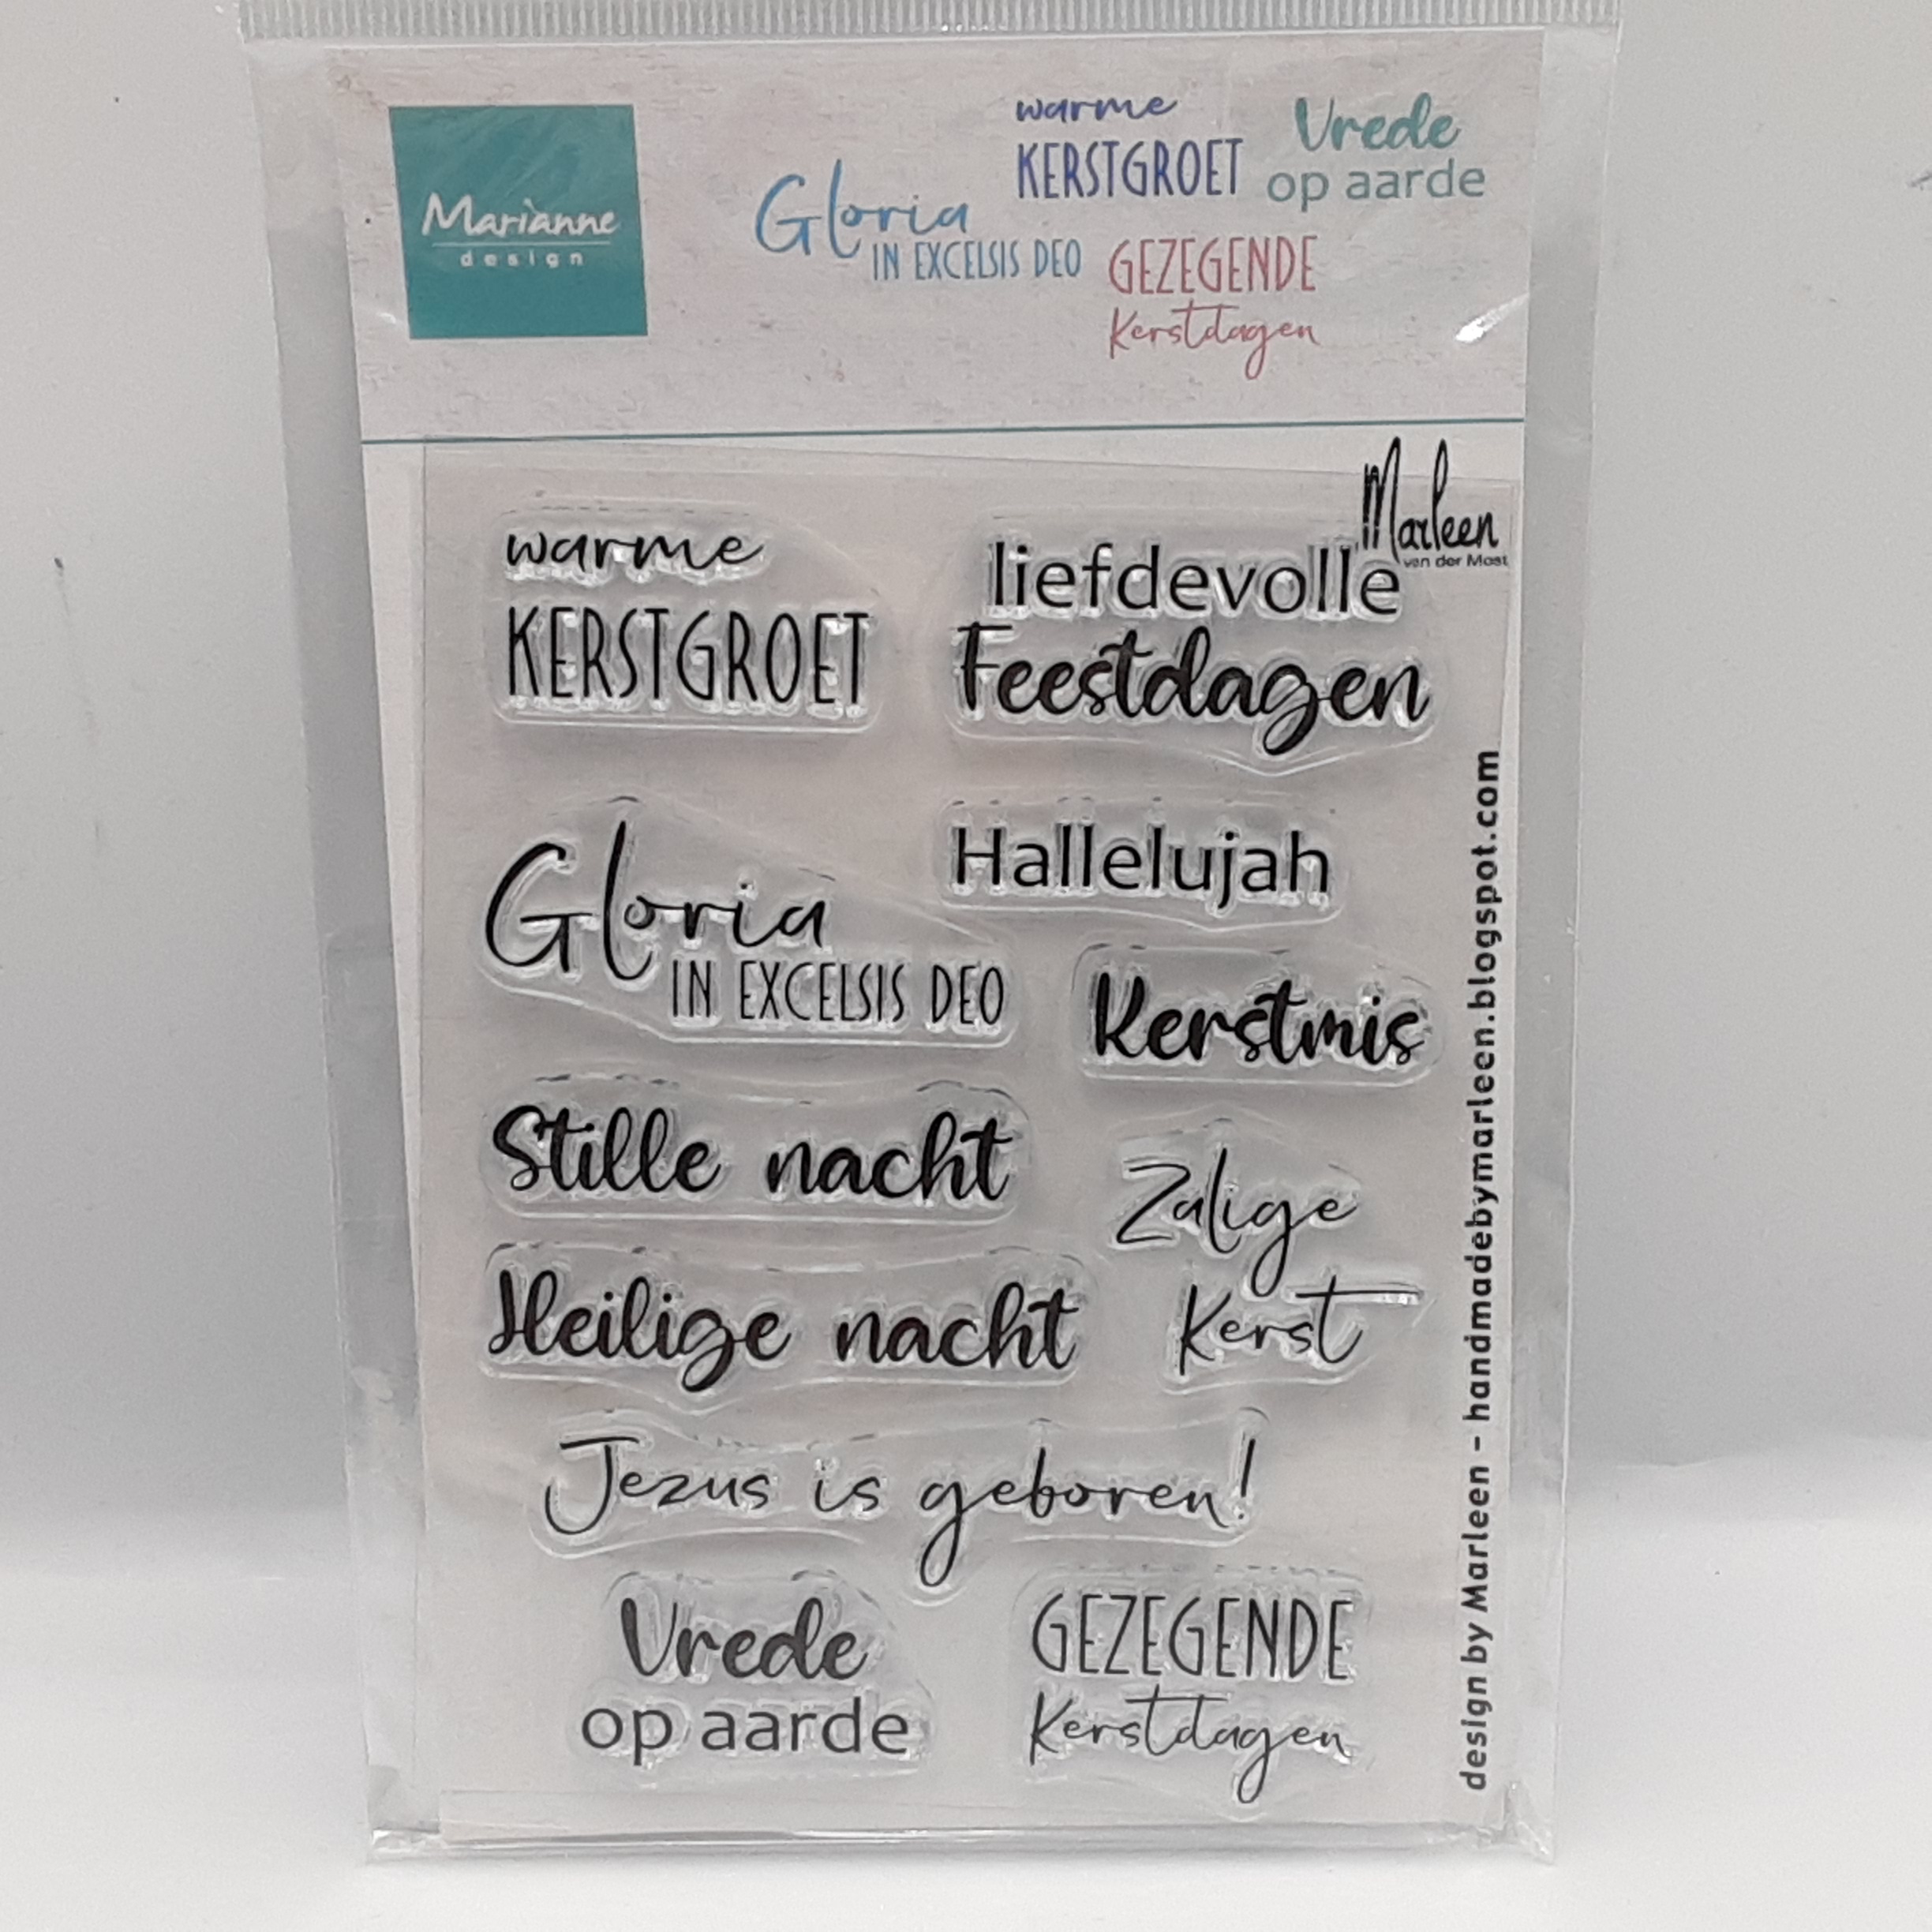 Marianne
design
warme
KERSTGROET
Vrede
op aarde
Gloria
IN EXCELSIS DEO
GEZEGENDE
Kerstdagen
Marleen
van der Most
warme
KERSTGROET
liefdevolle
Feestdagen
Gloria
IN EXCELSIS DEO
Hallelujah
Kerstmis
Stille nacht
Zalige
Kerst
Heilige nacht
Jezus is geboren!
Vrede
op aarde
GEZEGENDE
Kerstdagen
design by Marleen - handmadebymarleen.blogspot.com